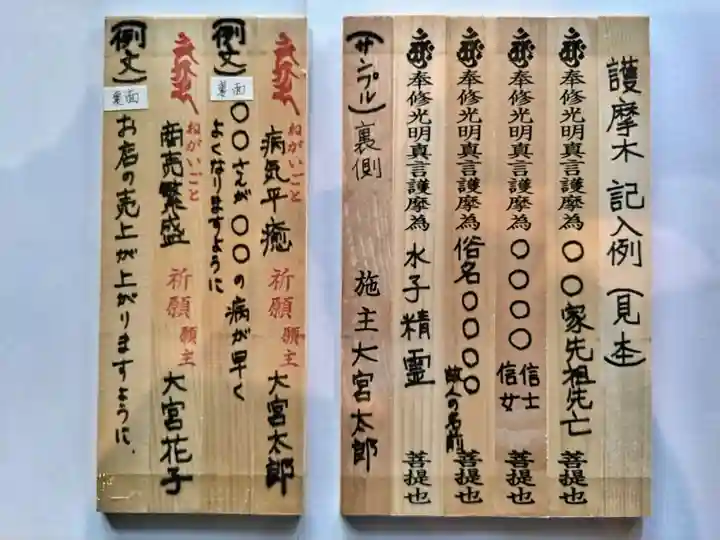 護摩木 記入例(見本)
奉修光明真言護摩為 〇〇家先祖先亡 菩提也
奉修光明真言護摩為 〇〇〇〇 信士 信女 菩提也
奉修光明真言護摩為 俗名〇〇〇〇 故人の名前 菩提也
奉修光明真言護摩為 水子精霊 菩提也
(サンプル)裏側 施主 大宮太郎
ねがいごと
病気平癒 祈願 願主 大宮太郎
(例文)
裏面
〇〇さんが〇〇の病が早く
よくなりますように
ねがいごと
商売繁盛 祈願 願主 大宮花子
(例文)
裏面
お店の売上が上がりますように、